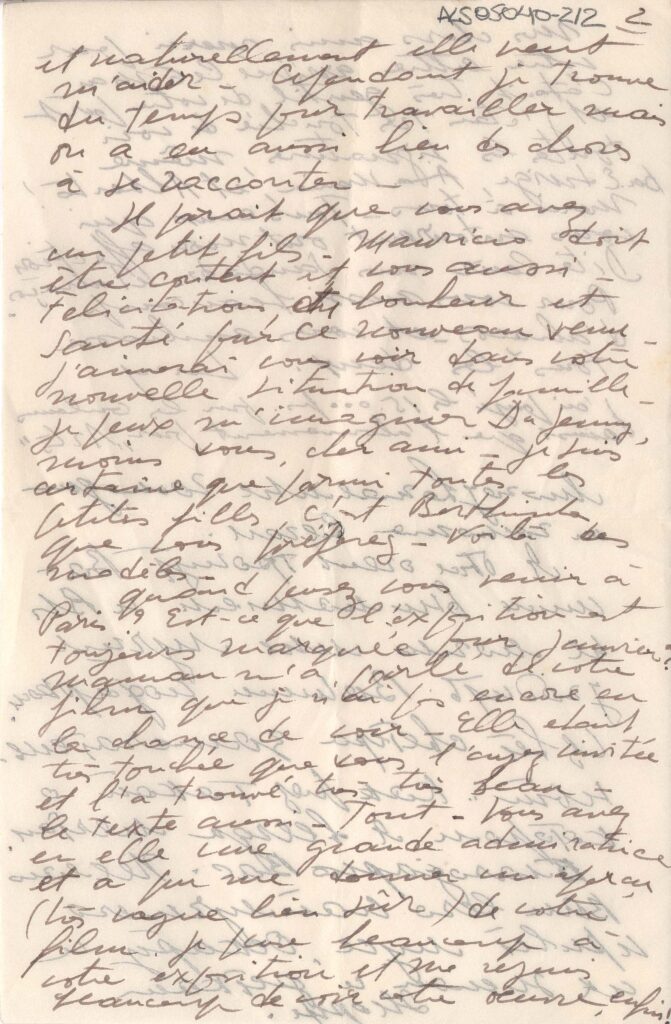 ALS05040-212 2
et naturellement elle veut
m'aider - Cependant je trouve
du temps pour travailler mais
on a eu aussi bien des choses
à se raconter -
Il parait que vous avez
un petit fils - Mauricio doit
être content et vous aussi -
Félicitations, bonheur et
santé pour ce nouveau venu -
J'aimerai vous voir dans votre
nouvelle situation de famille -
je peux m'imaginer Da Jenny,
moins vous, cher ami - je suis
certaine que parmi toutes les
petites filles c'est
que vous préférez - Voilà des
modèles -
quand pensez vous venir à
Paris ? Est-ce que l'exposition est
toujours marquée pour Janvier ?
maman m'a parlé de votre
film que je n'ai pas encore eu
la chance de voir - Elle etait
très touchée que vous l'ayez invitée
et l'a trouvé très très beau -
le texte aussi - Tout - Vous avez
en elle une grande admiratrice
et a pu me donner un aperçu
(très vague bien sûre) de votre
film. je pense beaucoup à
votre exposition et me rejouis
beaucoup de voir votre oeuvre, enfin.